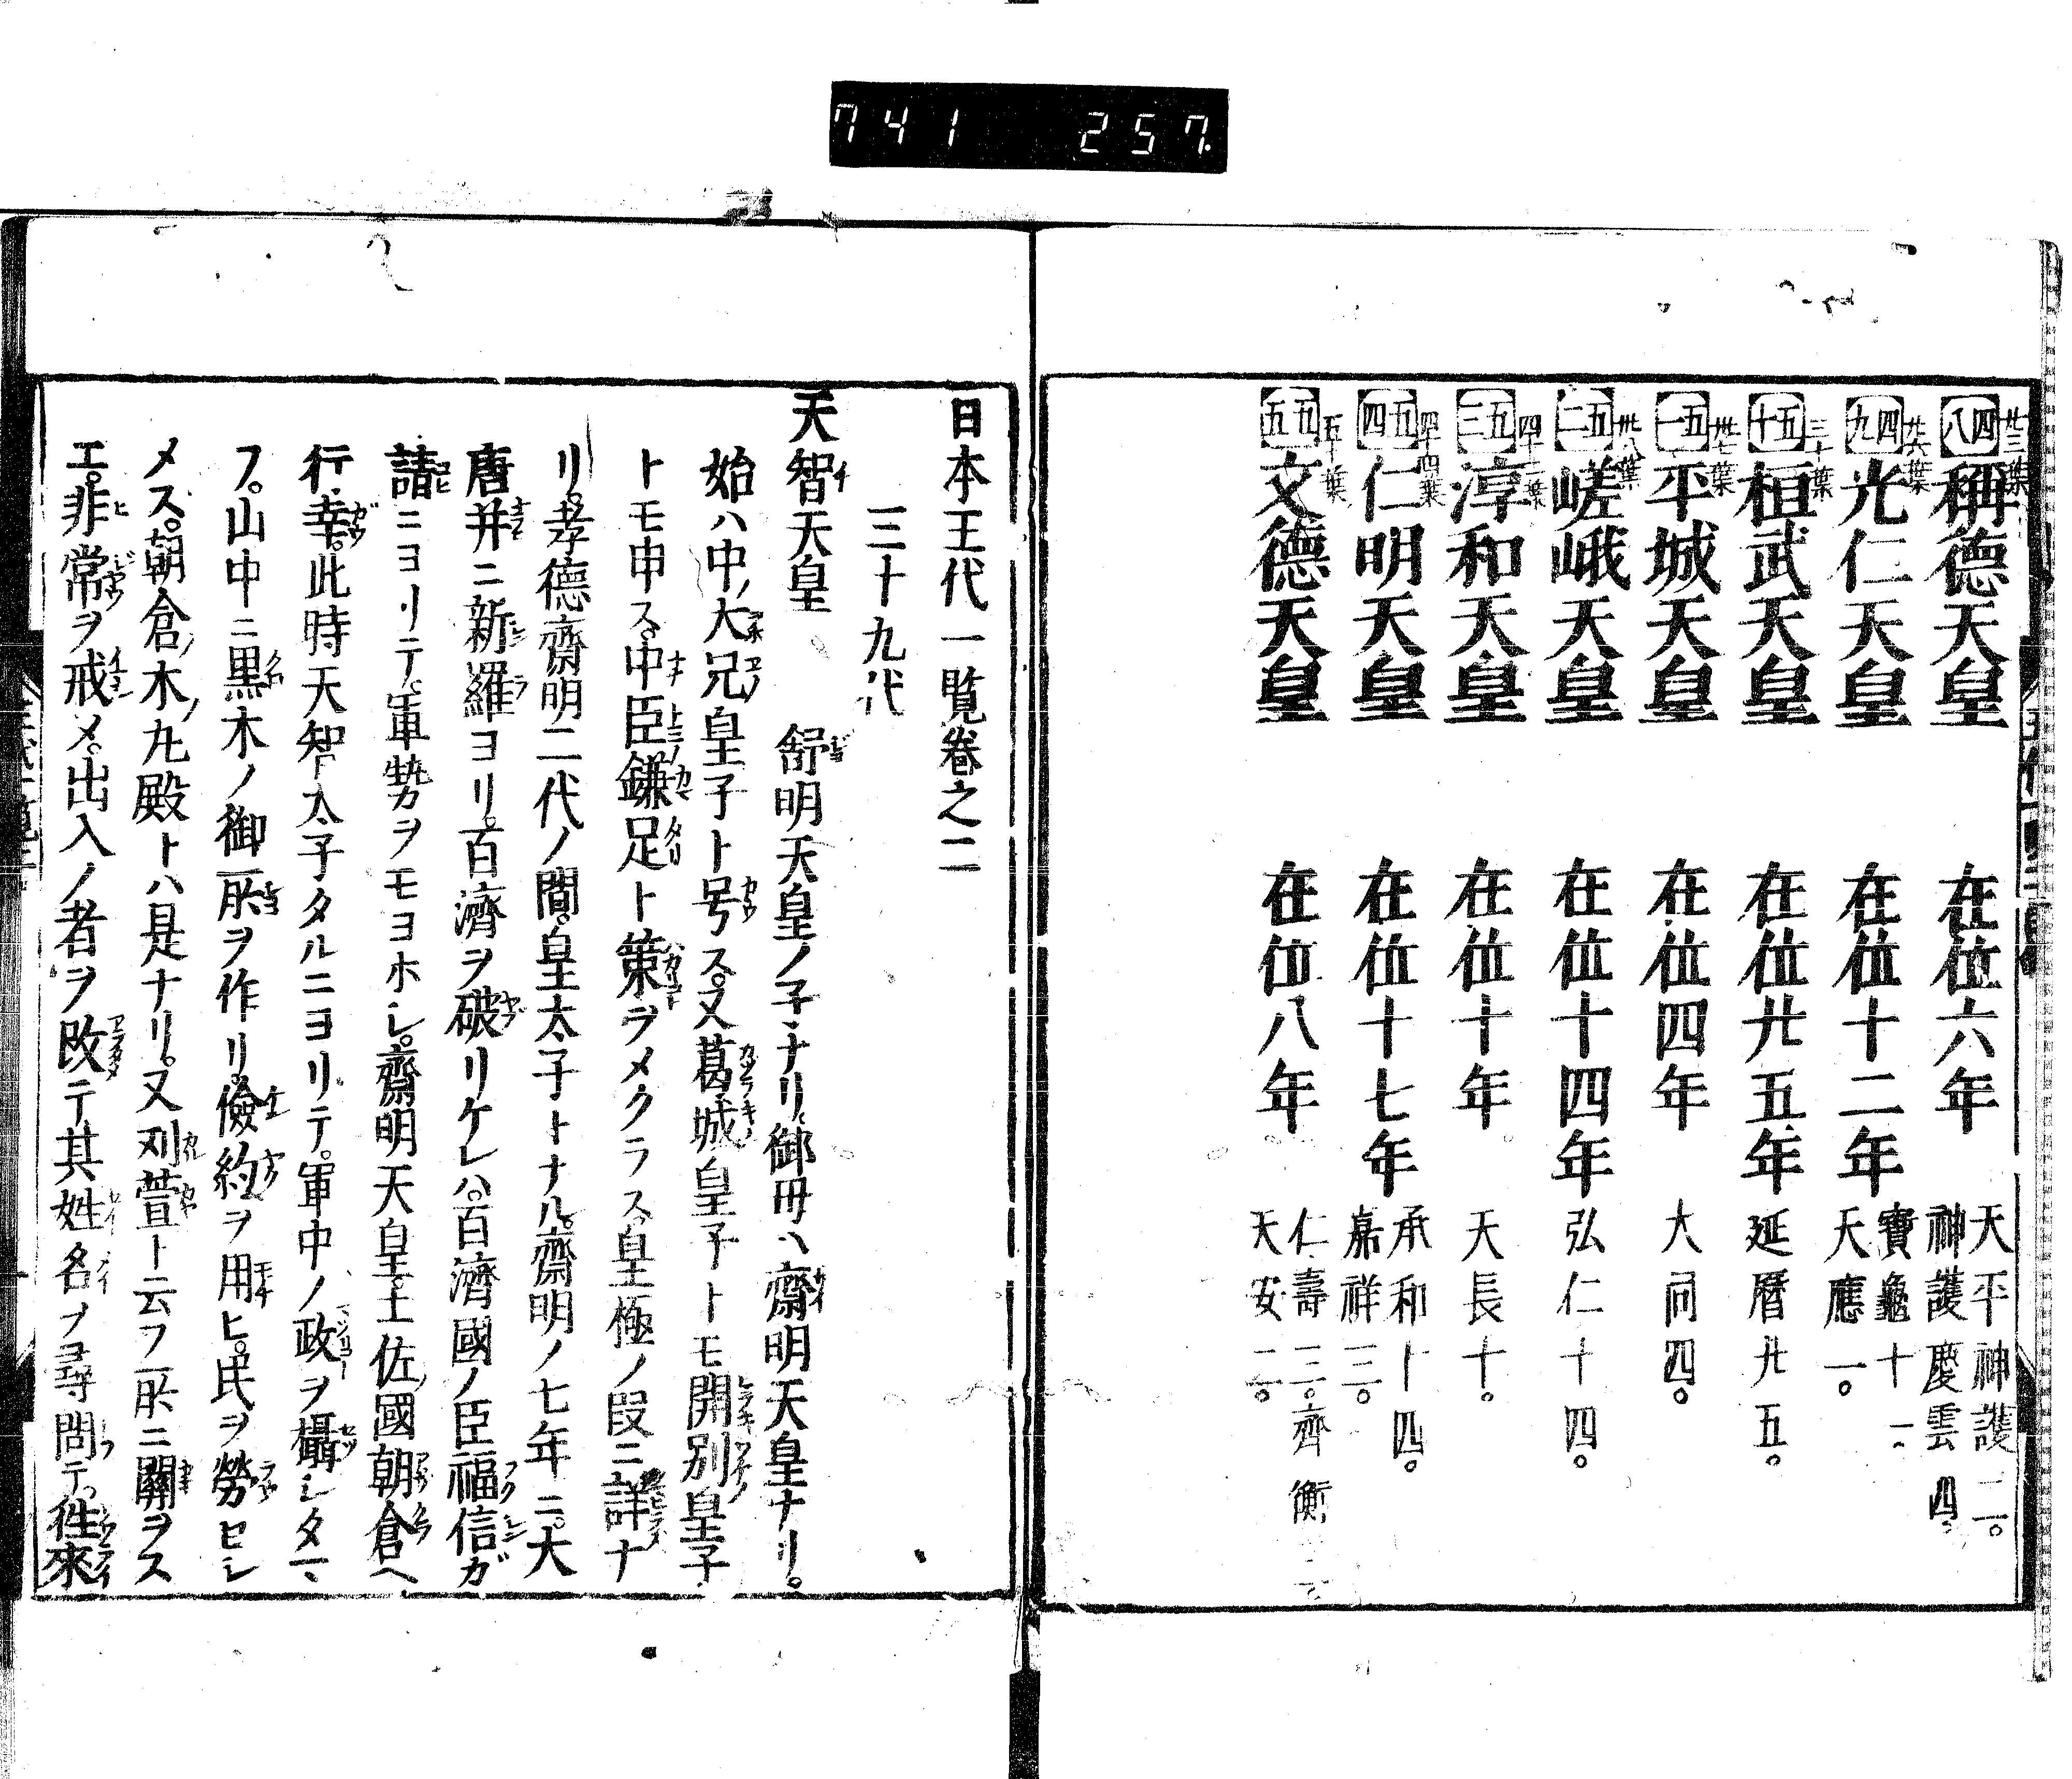 741 257
四八 廿三葉 稱德天皇 在位六年 天平神護二。神護慶雲四。
四九 廿六葉 光仁天皇 在位十二年 寶龜十一。天應一。
五十 三十葉 桓武天皇 在位廿五年 延曆廿五。
五一 卅七葉 平城天皇 在位四年 大同四。
五二 卅八葉 嵯峨天皇 在位十四年 弘仁十四。
五三 四十二葉 淳和天皇 在位十年 天長十。
五四 四十四葉 仁明天皇 在位十七年 承和十四。嘉祥三。
五五 五十葉 文德天皇 在位八年 仁壽三。齊衡 天安二。
日本王代一覧卷之二
三十九代
天智天皇 舒明天皇ノ子ナリ。御母ハ齋明天皇ナリ。
始ハ中ノ大兄皇子ト号ス。又葛城皇子トモ開別皇子
トモ申ス。中臣鎌足ト策ヲメクラス。皇極ノ段ニ詳ナ
リ。孝德齋明二代ノ間。皇太子トナル。齋明ノ七年ニ。大
唐并ニ新羅ヨリ。百濟ヲ破リケレハ。百濟國ノ臣福信ガ
請ニヨリテ。軍勢ヲモヨホシ。齋明天皇。土佐ノ國朝倉ヘ
行幸。此時天智太子タルニヨリテ。軍中ノ政ヲ攝シタマ
フ。山中ニ黒木ノ御所ヲ作リ。儉約ヲ用ヒ。民ヲ勞セシ
メス。朝倉ノ木ノ丸殿トハ是ナリ。又刈萱ト云フ所ニ關ヲス
エ。非常ヲ戒メ。出入ノ者ヲ改テ其姓名ヲ尋問テ。徃來